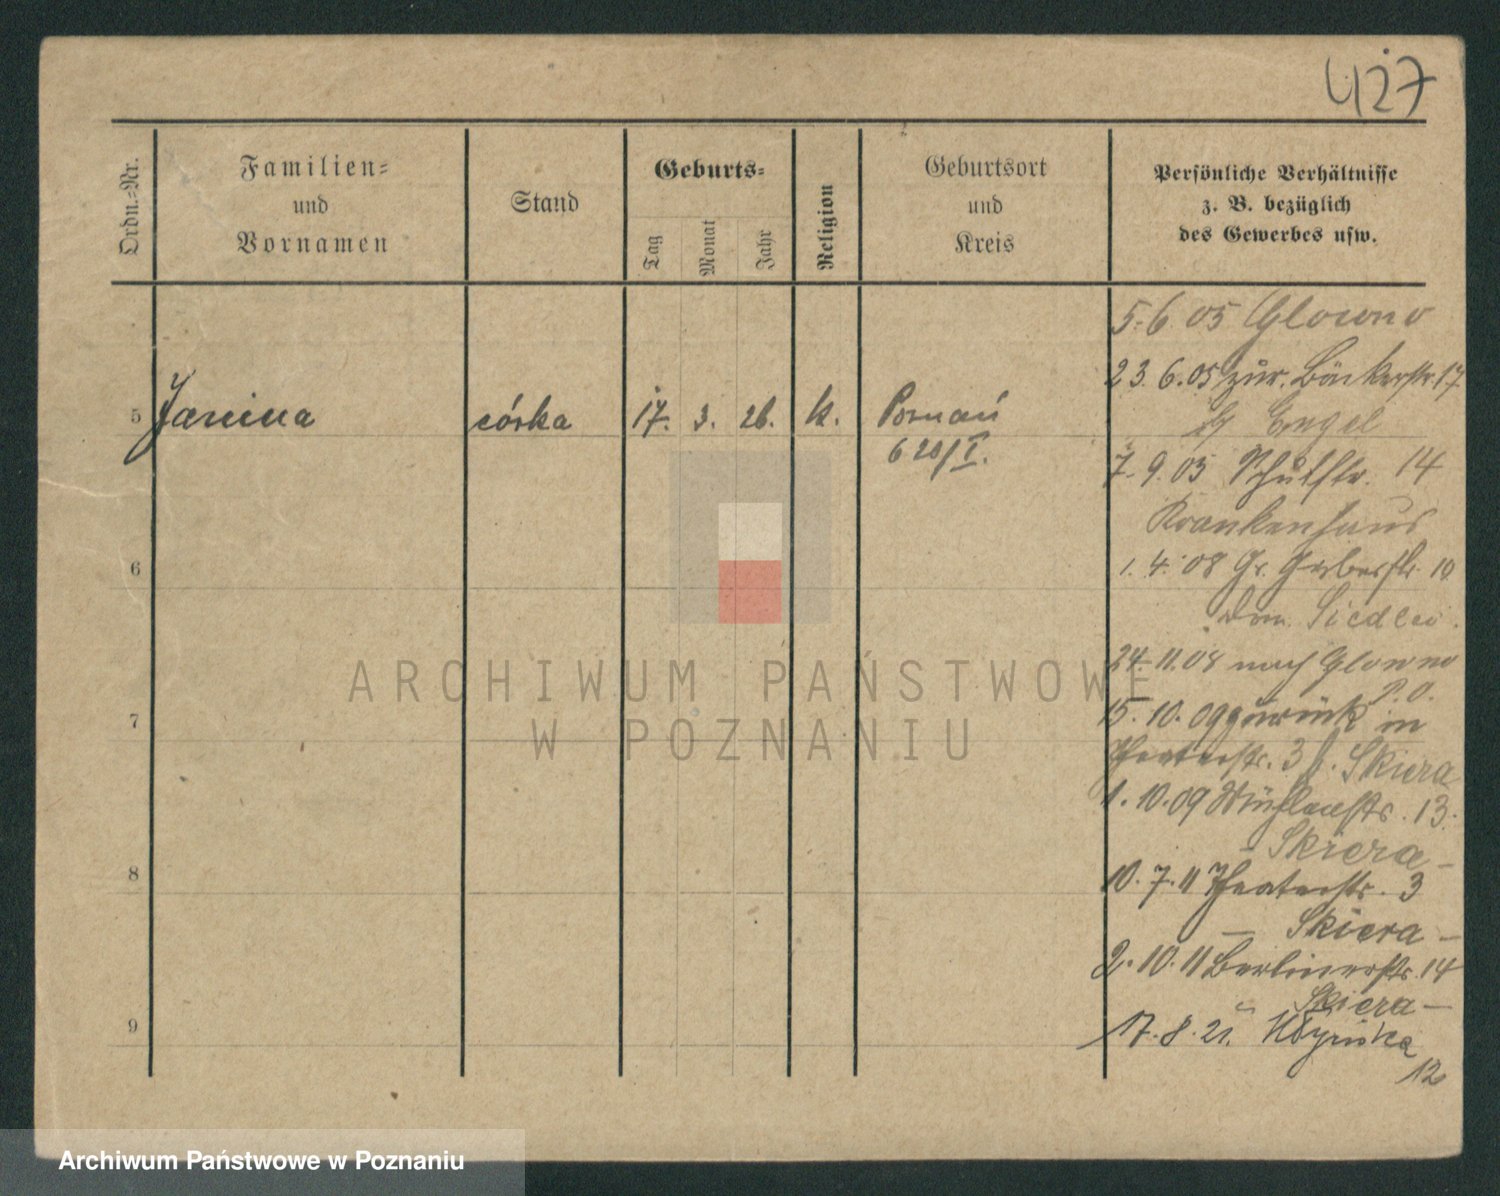 427
Ordn.-Nr.
Familien-
und
Vornamen
Stand
Geburts-
Tag
Monat
Jahr
Religion
Geburtsort
und
Kreis
Persönliche Verhältnisse
z. B. bezüglich
des Gewerbes usw.
5-6 05 Glowno
23.6.05 zur. Bäckerstr. 17
Engel
5 Janina córka 17. 3. 26. k. Poznań
620/I.
7.9.05 Schulstr. 14
Krankenhaus
6
1.4.08 Gr. Gerberstr. 10
Dom.
24.11.08 nach Glowno
P.O.
7
15.10.09 zurück in
Theaterstr. 3 b. Skiera
1.10.09 Mühlenstr. 13.
- Skiera -
8
10.7.11 Theaterstr. 3
- Skiera -
2.10.11 Berlinerstr. 14
Skiera -
9
17.8.21.
12
ARCHIWUM PAŃSTWOWE
W POZNANIU
Archiwum Państwowe w Poznaniu